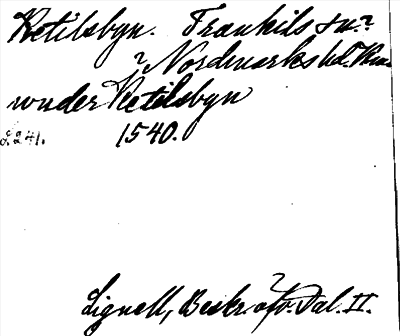 Ketilsbyn. Frankils sn.?
? Nordmarks hd.
under Ketilsbyn
s. 241. 1540.
Lignell, Beskr. öfv. Dal. II.